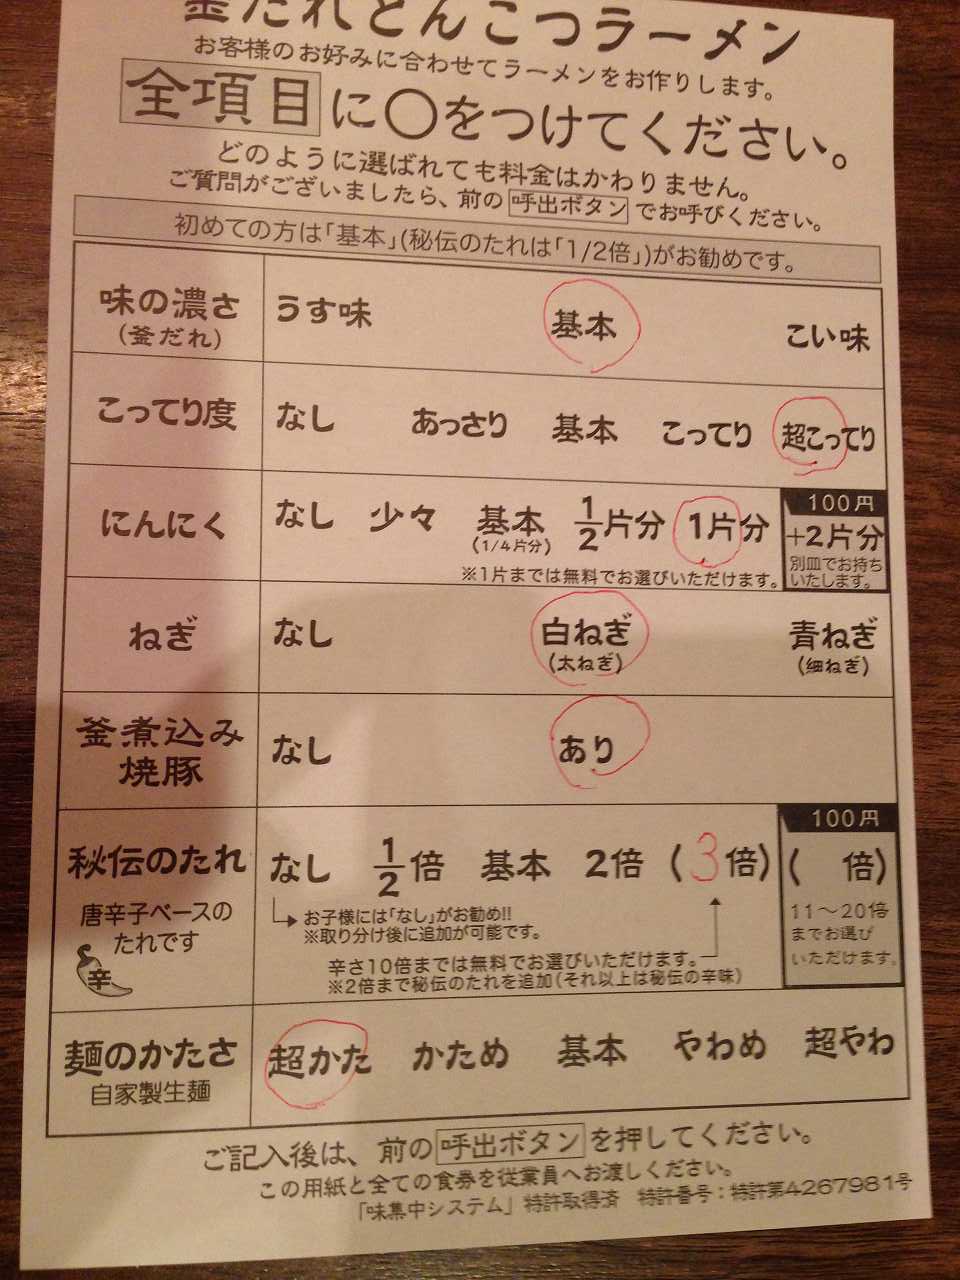 釜だれとんこつラーメン
お客様のお好みに合わせてラーメンをお作りします。
全項目に〇をつけてください。
どのように選ばれても料金はかわりません。
ご質問がございましたら、前の呼出ボタンでお呼びください。
初めての方は「基本」(秘伝のたれは「1/2倍」)がお勧めです。
味の濃さ うす味 基本 こい味
(釜だれ)
こってり度 なし あっさり 基本 こってり 超こってり
100円
にんにく なし 少々 基本 1/2片分 1片分 +2片分
(1/4片分)
別皿でお持ち
いたします。
※1片までは無料でお選びいただけます。
ねぎ なし 白ねぎ 青ねぎ
(太ねぎ) (細ねぎ)
釜煮込み
焼豚
なし あり
100円
秘伝のたれ なし 1/2倍 基本 2倍 (3倍) ( 倍)
唐辛子ベースの
たれです
辛
お子様には「なし」がお勧め!!
※取り分け後に追加が可能です。
辛さ10倍までは無料でお選びいただけます。
※2倍まで秘伝のたれを追加(それ以上は秘伝の辛味)
11〜20倍
までお選び
いただけます。
麺のかたさ 超かた かため 基本 やわめ 超やわ
自家製生麺
ご記入後は、前の呼出ボタンを押してください。
この用紙と全ての食券を従業員へお渡しください。
「味集中システム」特許取得済 特許番号:特許第4267981号